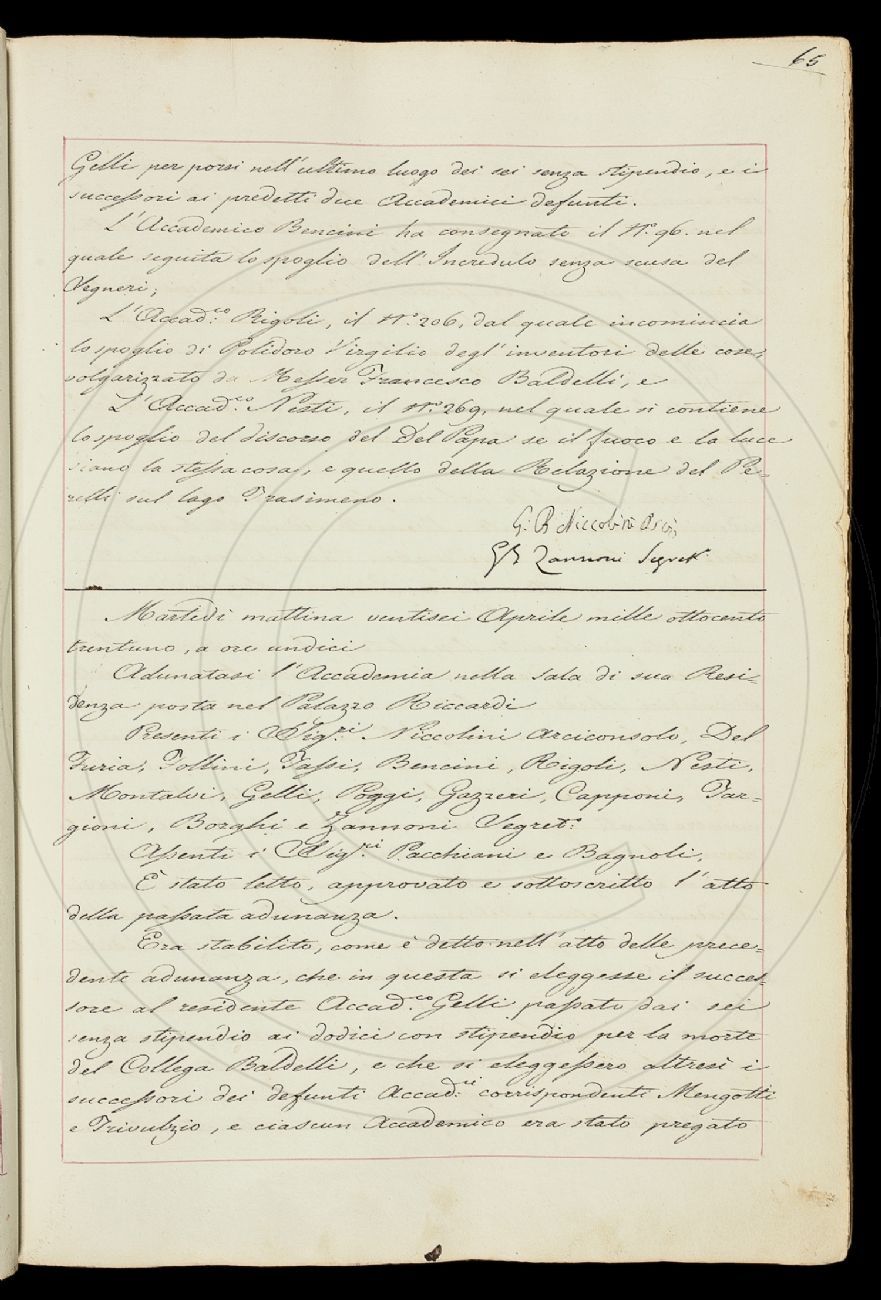 65
Gelli per porsi nell'ultimo luogo dei sei senza stipendio, e i
successori ai predetti due Accademici defunti.
L'Accademico Bencini ha consegnato il N.º 96. nel
quale seguita lo spoglio dell'Incredulo senza scusa del
Segneri;
L'Accad.co Rigoli, il N.º 206, dal quale incomincia
lo spoglio di Polidoro Virgilio degl'inventori delle cose,
volgarizzato da Messer Francesco Baldelli, e
L'Accad.co Nesti, il N.º 269, nel quale si contiene
lo spoglio del discorso del Del Papa se il fuoco e la luce
siano la stessa cosa, e quello della Relazione del Pe-
relli sul lago Trasimeno.
G. B. Niccolini
G B Zannoni Segret.
Martedì mattina ventisei Aprile mille ottocento
trentuno, a ore undici
Adunatasi l'Accademia nella sala di sua Resi-
denza posta nel Palazzo Riccardi
Presenti i Sig.ri Niccolini Arciconsolo, Del
Furia, Follini, Tassi, Bencini, Rigoli, Nesti,
Montalvi, Gelli, Poggi, Gazzeri, Capponi, Tar-
gioni, Borghi e Zannoni Segret.º
Assenti i Sig.ri Pacchiani e Bagnoli.
È stato letto, approvato e sottoscritto l'atto
della passata adunanza.
Era stabilito, come è detto nell'atto delle prece-
dente adunanza, che in questa si eleggesse il succes-
sore al residente Accad.co Gelli passato dai sei
senza stipendio ai dodici con stipendio per la morte
del Collega Baldelli, e che si eleggessero altresì i
successori dei defunti Accad.ci corrispondenti Mengotti
e Trivulzio, e ciascun Accademico era stato pregato